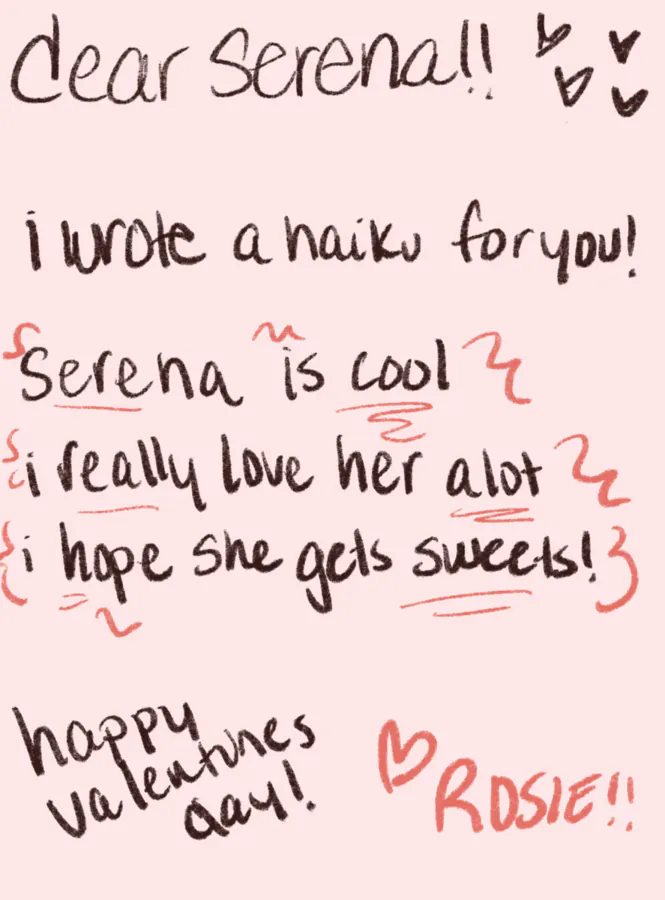 dear Serena!!
i wrote a haiku for you!
Serena is cool
i really love her alot
i hope she gets sweets!
happy
valentines
day!
ROSIE!!